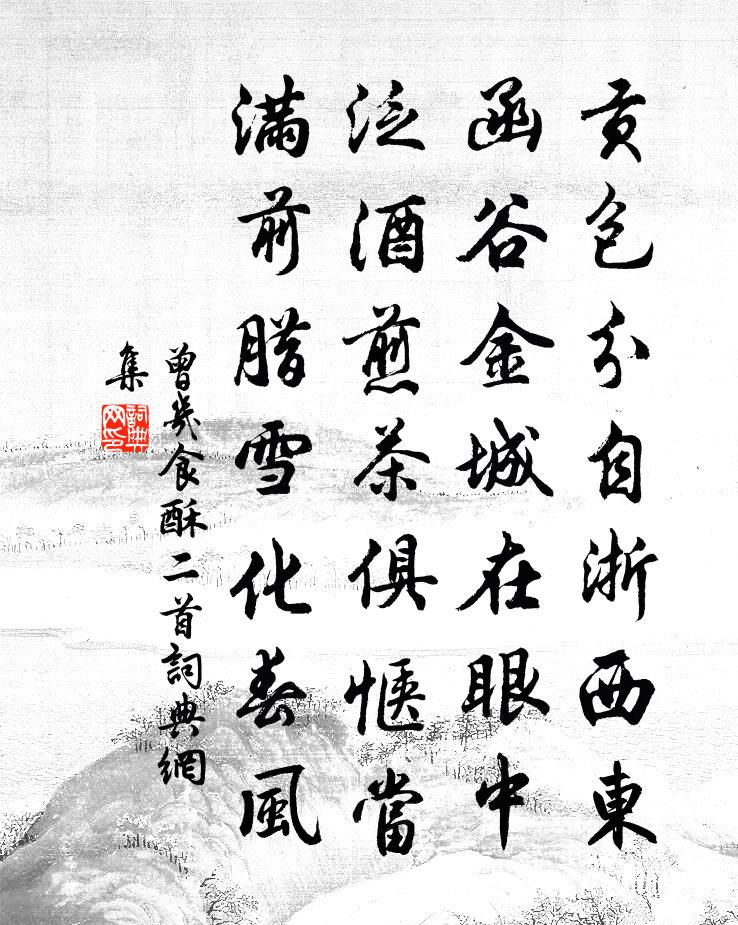 贡包分自浙西東
函谷金城在眼中
泛酒煎茶俱惬當
滿前腊雪化春風
曾幾食酥二首詞典網
集
詞典
网印